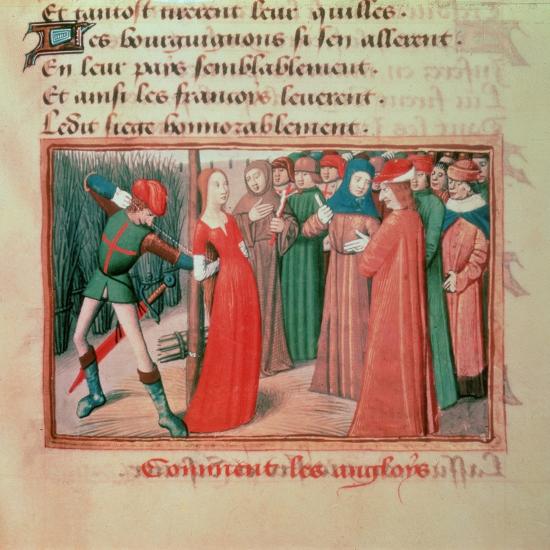 Et tantost tirerent leur quilles.
Les bourguignons si sen allerent.
En leur pays semblablement.
Et ainsi les francoys leverent.
Ledit siege honnorablement.
Comment les angloys